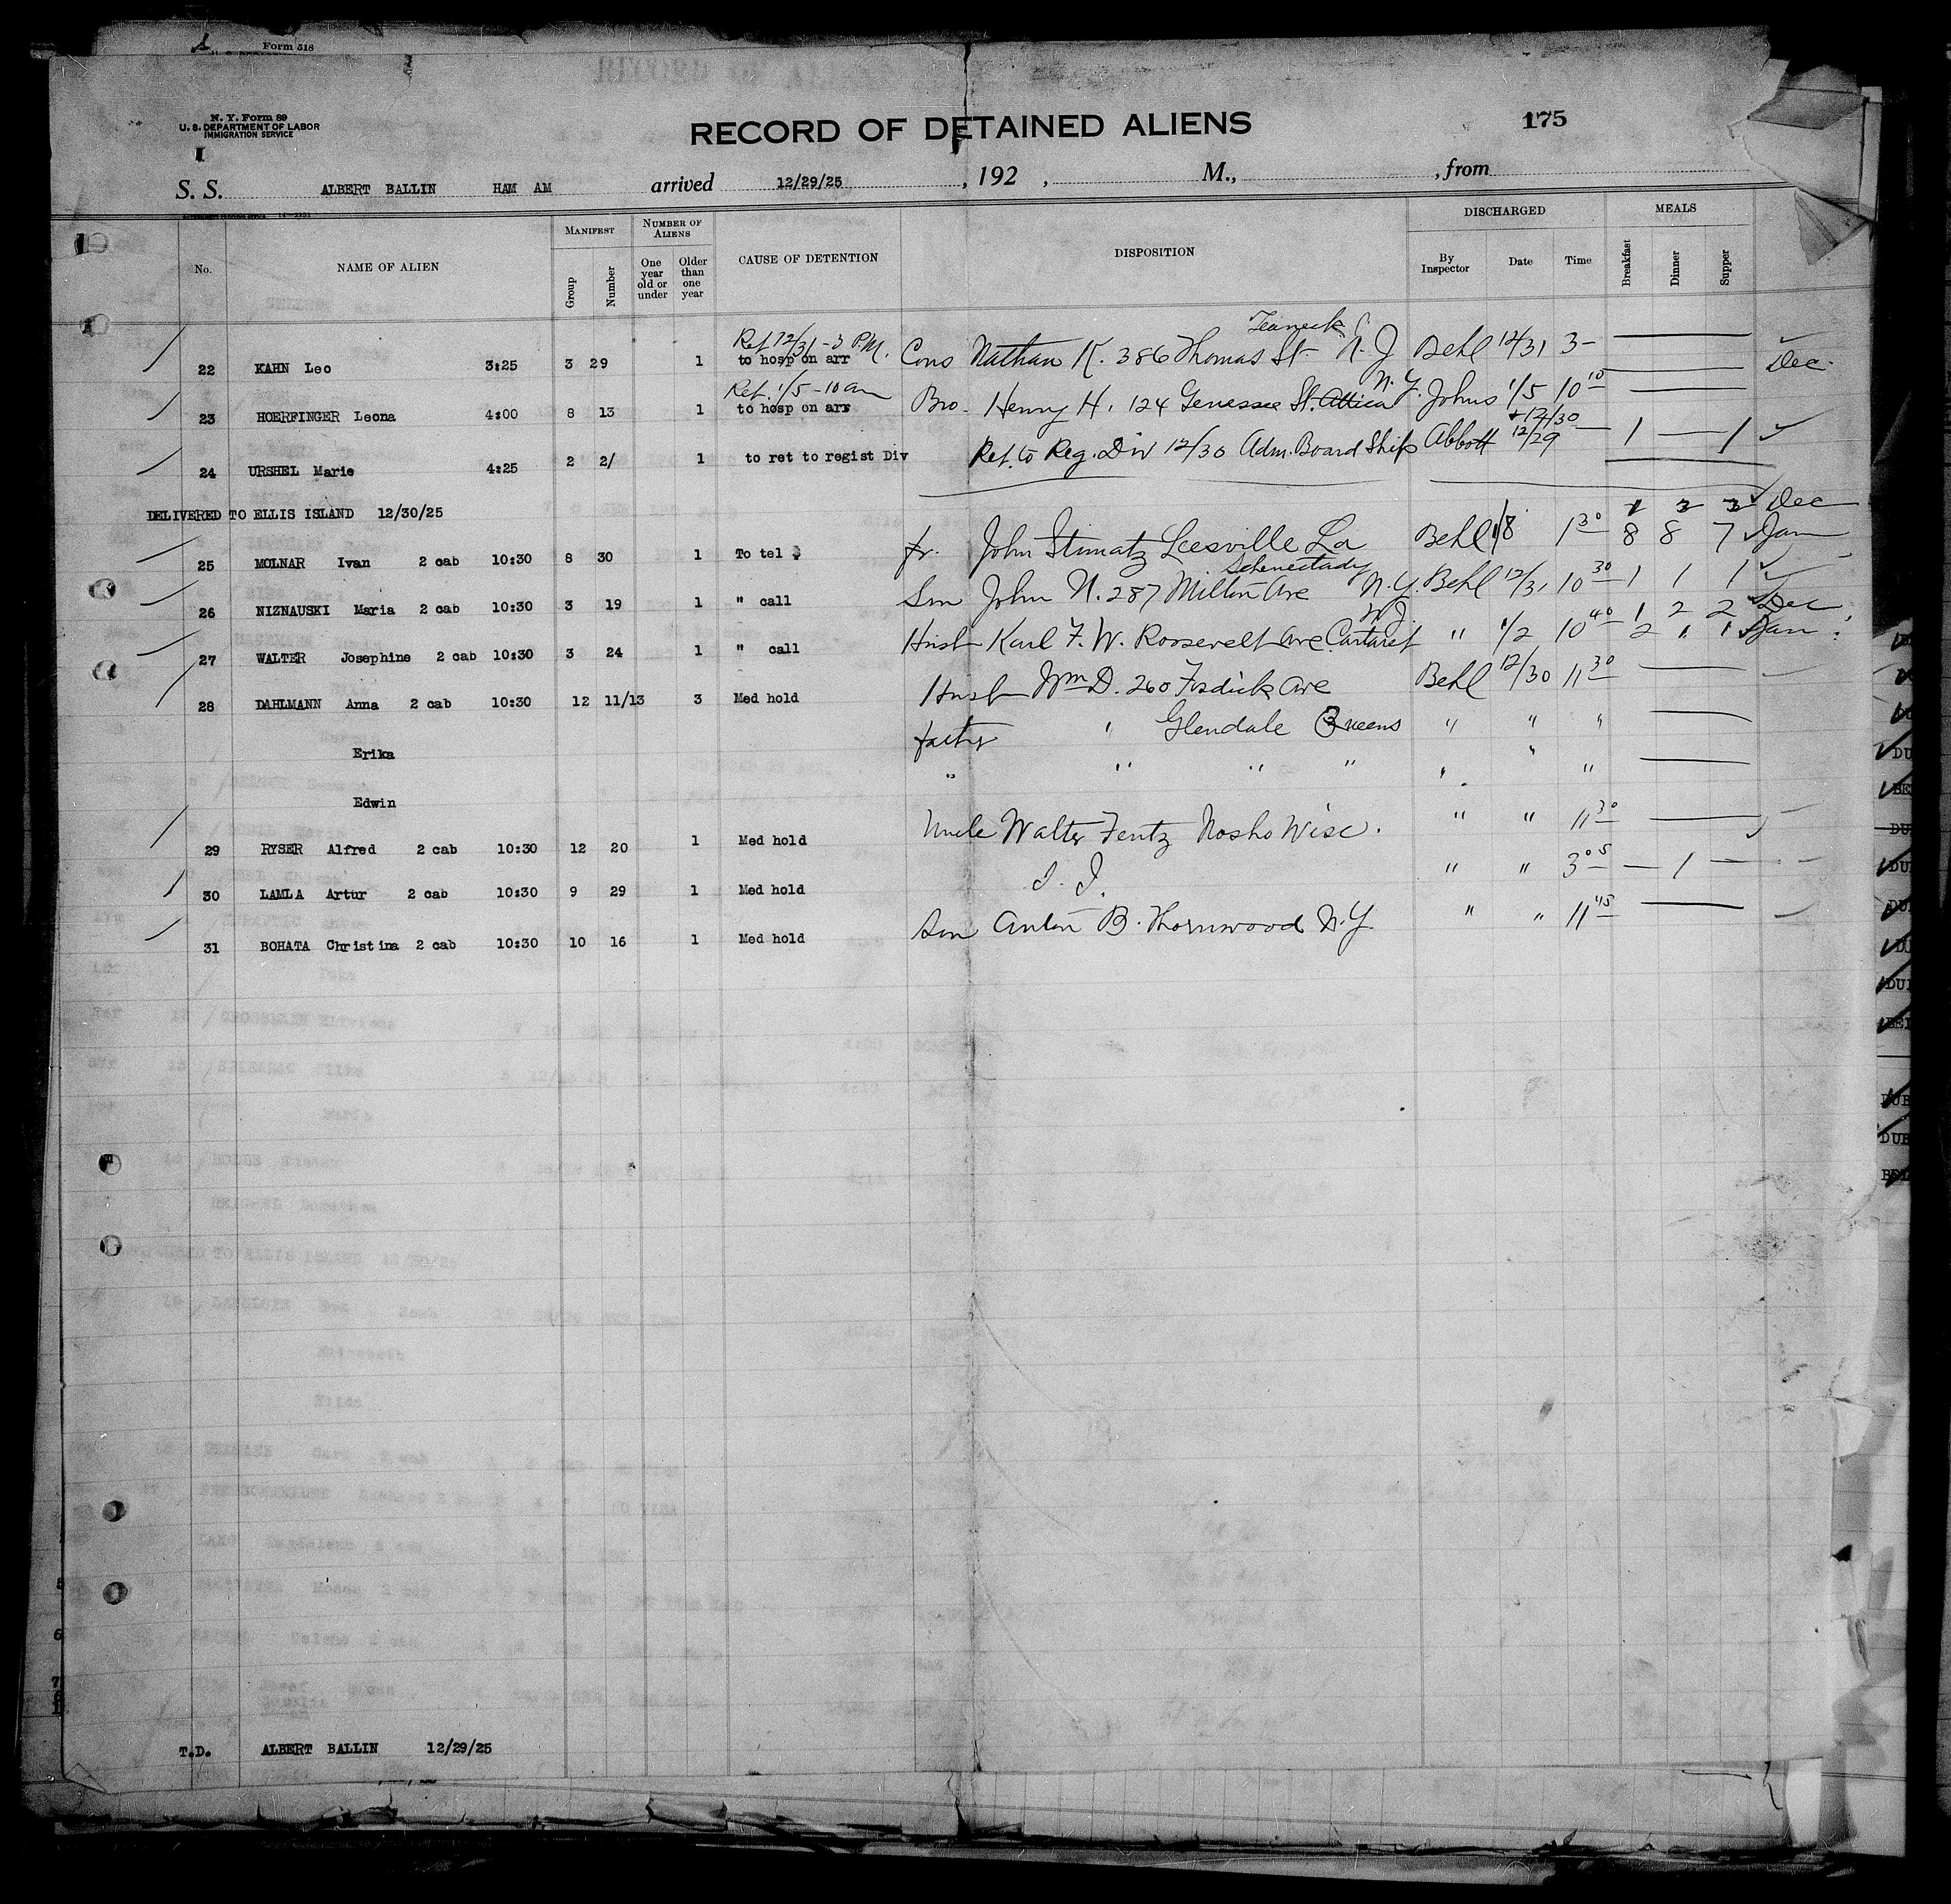 Form 518
N. Y. Form 89
U. S. DEPARTMENT OF LABOR
IMMIGRATION SERVICE
RECORD OF DETAINED ALIENS 175
S. S. ALBERT BALLIN HAM AM arrived 12/29/25, 192 , M., , from
No. NAME OF ALIEN MANIFEST NUMBER OF ALIENS CAUSE OF DETENTION DISPOSITION DISCHARGED MEALS
Group Number One year old or under Older than one year By Inspector Date Time Breakfast Dinner Supper
Ret 12/31 - 3 P.M. Teaneck
22 KAHN Leo 3:25 3 29 1 to hosp on arr Cons Nathan K. 386 Thomas St N. J Behl 12/31 3- Dec.
Ret. 1/5 - 10 am N.Y.
23 HOERFINGER Leona 4:00 8 13 1 to hosp on arr Bro. Henry H. 124 Genessee St. Attica Johns 1/5 10 10
+ 12/30
24 URSHEL Marie 4:25 2 2/ 1 to ret to regist Div Ret. to Reg. Div 12/30 Adm. Board Ship Abbott 12/29 — 1 — 1
DELIVERED TO ELLIS ISLAND 12/30/25
1 2 2 Dec
25 MOLNAR Ivan 2 cab 10:30 8 30 1 To tel fr. John Stimatz Leesville La Behl 1/8 1 30 8 8 7 Jan
Schenectady
26 NIZNAUSKI Maria 2 cab 10:30 3 19 1 " call Son John N. 287 Milton Ave N.Y. Behl 12/31 10 30 1 1 1
N.J. 1 2 2 Dec
27 WALTER Josephine 2 cab 10:30 3 24 1 " call Husb Karl F. W. Roosevelt Ave Cartaret " 1/2 10 40 2 1 1 Jan
28 DAHLMANN Anna 2 cab 10:30 12 11/13 3 Med hold Husb Wm D. 260 Fosdick Ave Behl 12/30 11 30
Erika father " Glendale Queens " " "
Edwin " " " " " " "
29 RYSER Alfred 2 cab 10:30 12 20 1 Med hold Uncle Walter Zentz Nosho Wisc. " " 11 30
30 LAMLA Artur 2 cab 10:30 9 29 1 Med hold " " 3 05 — 1 —
31 BOHATA Christina 2 cab 10:30 10 16 1 Med hold Son Anton B. Thornwood N.Y. " " 11 45
T.D. ALBERT BALLIN 12/29/25